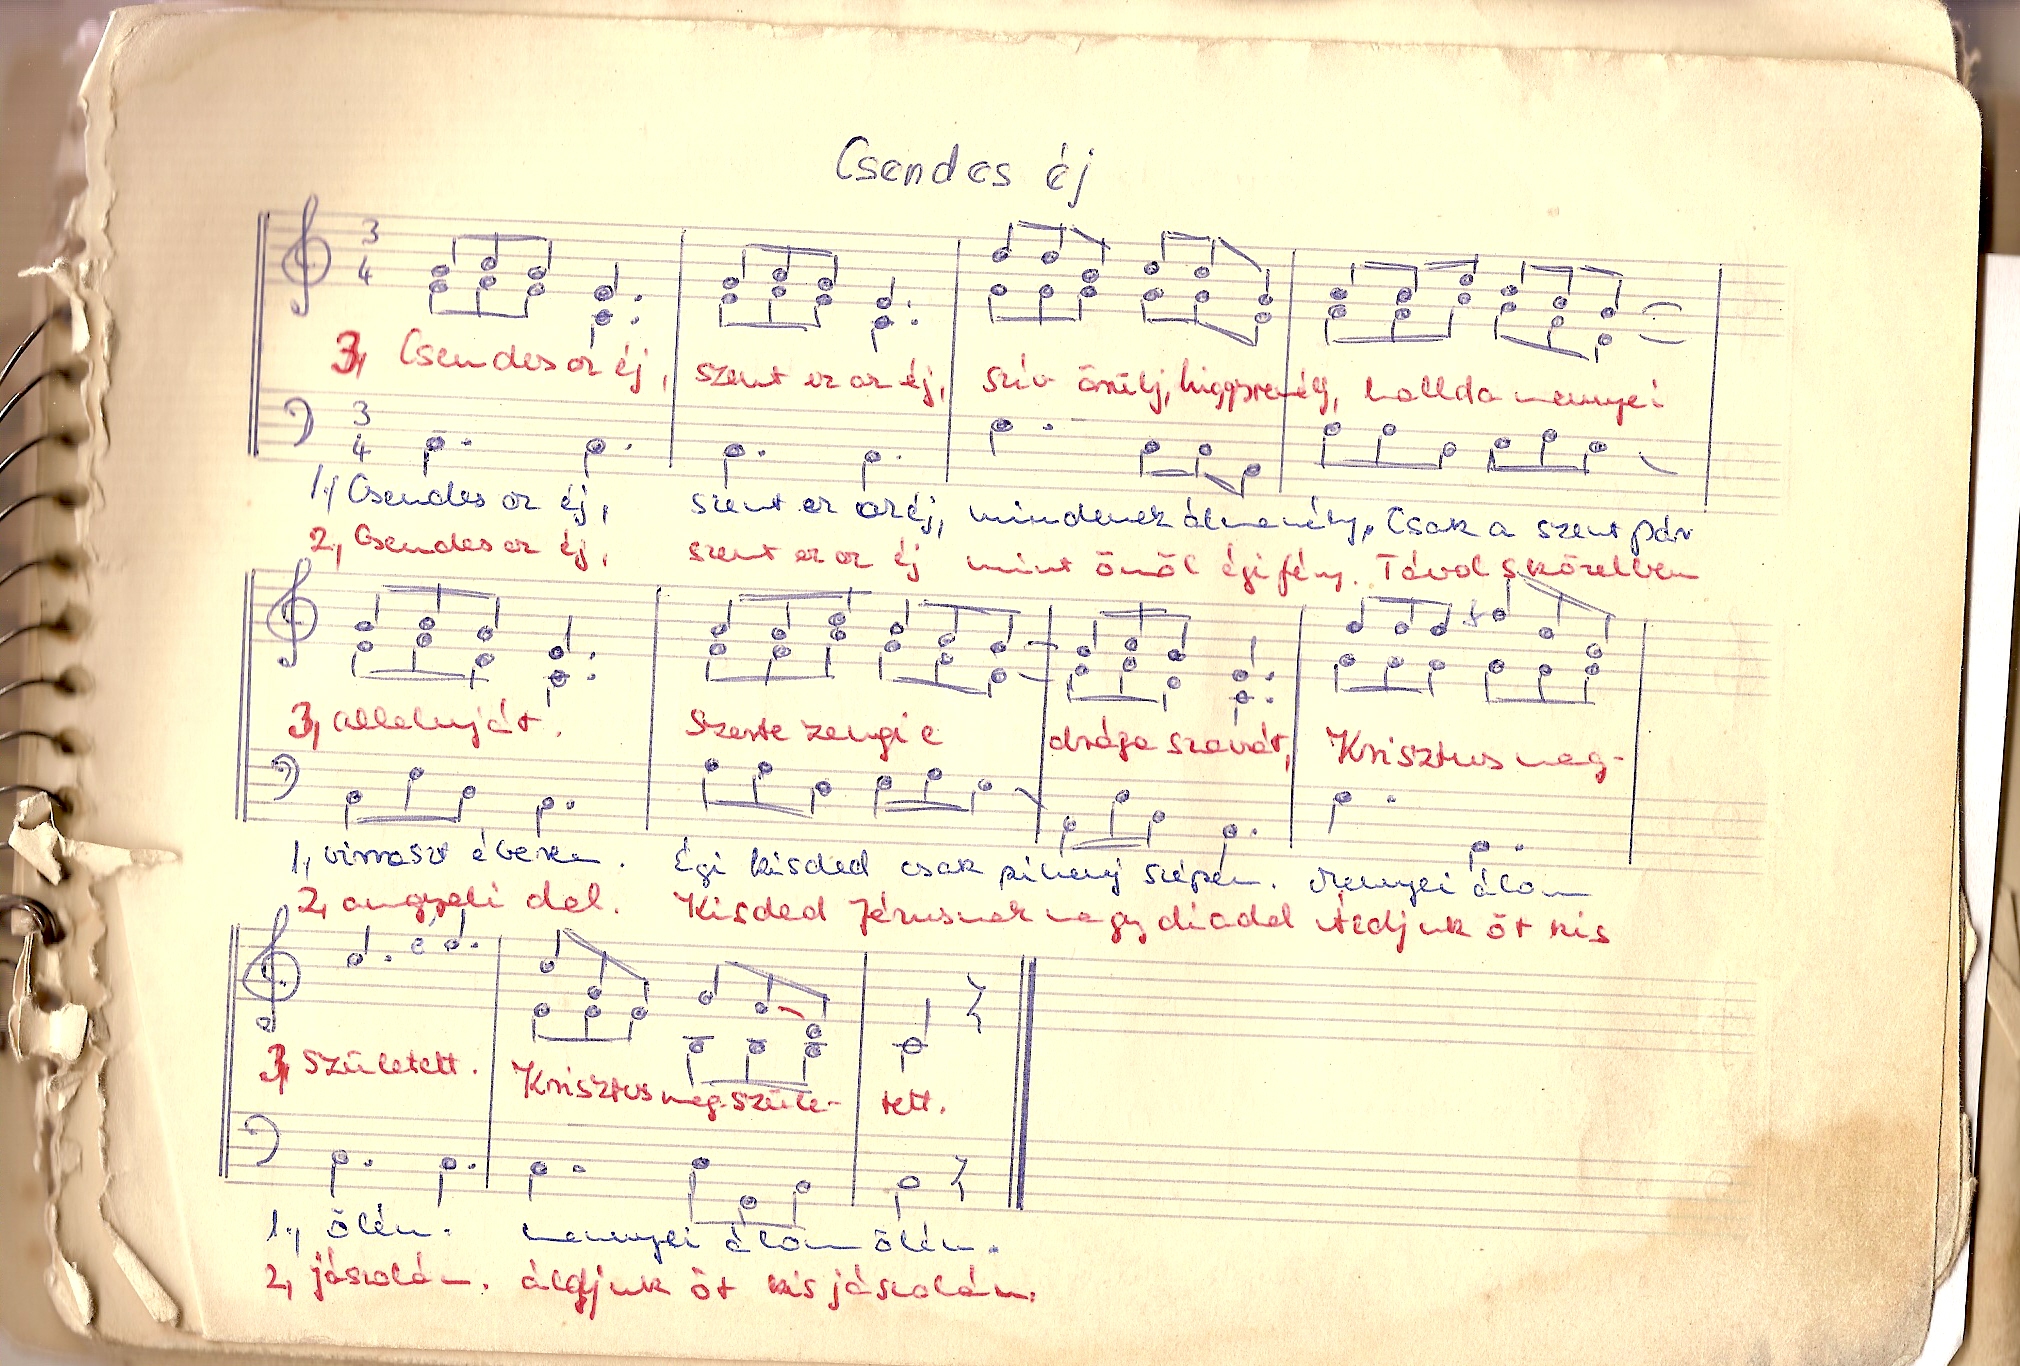 Csendes éj
3
4
3, Csendes az éj, szent ez az éj, szív örülj, higgy remélj, hallda mennyei
3
4
1, Csendes az éj, szent ez az éj, mindenek álma mély, Csak a szent pár
2, Csendes az éj, szent ez az éj mint önöl égi fény. Távol s közelben
3, alleluját. Szerte zengi e drága szavát, Krisztus meg-
1, virraszt ébren. Égi kisded csak pihenj szépen. Mennyei álom
2, angyali dal. Kisded Jézusnak nagy diadal Áldjuk őt kis
3, született. Krisztus megszüle- tett.
1, ölén. mennyei álom ölén.
2, jászolán. áldjuk őt kis jászolán.